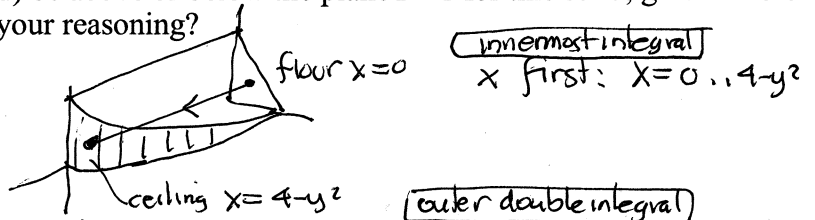 your reasoning?
innermost integral
flour x=0
x first: x=0..4-y²
ceiling x=4-y²
outer double integral